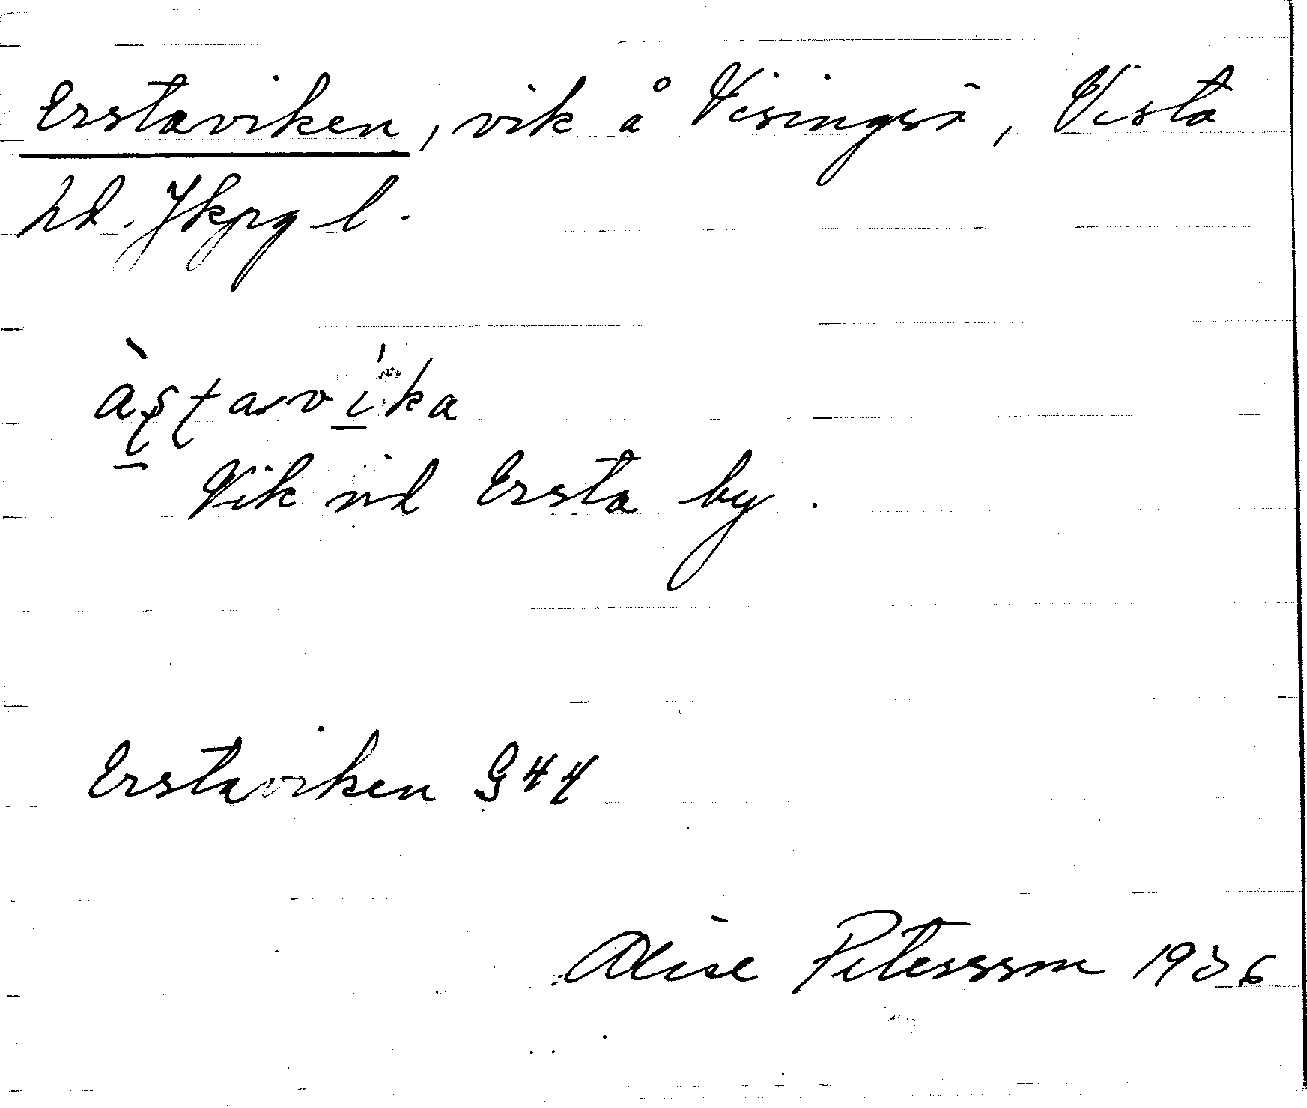 Erstaviken, vik å Visingsö, Vista
hd. Jkpg l.
Vik vid Ersta by.
Erstaviken G44
Alise Petersson 1936